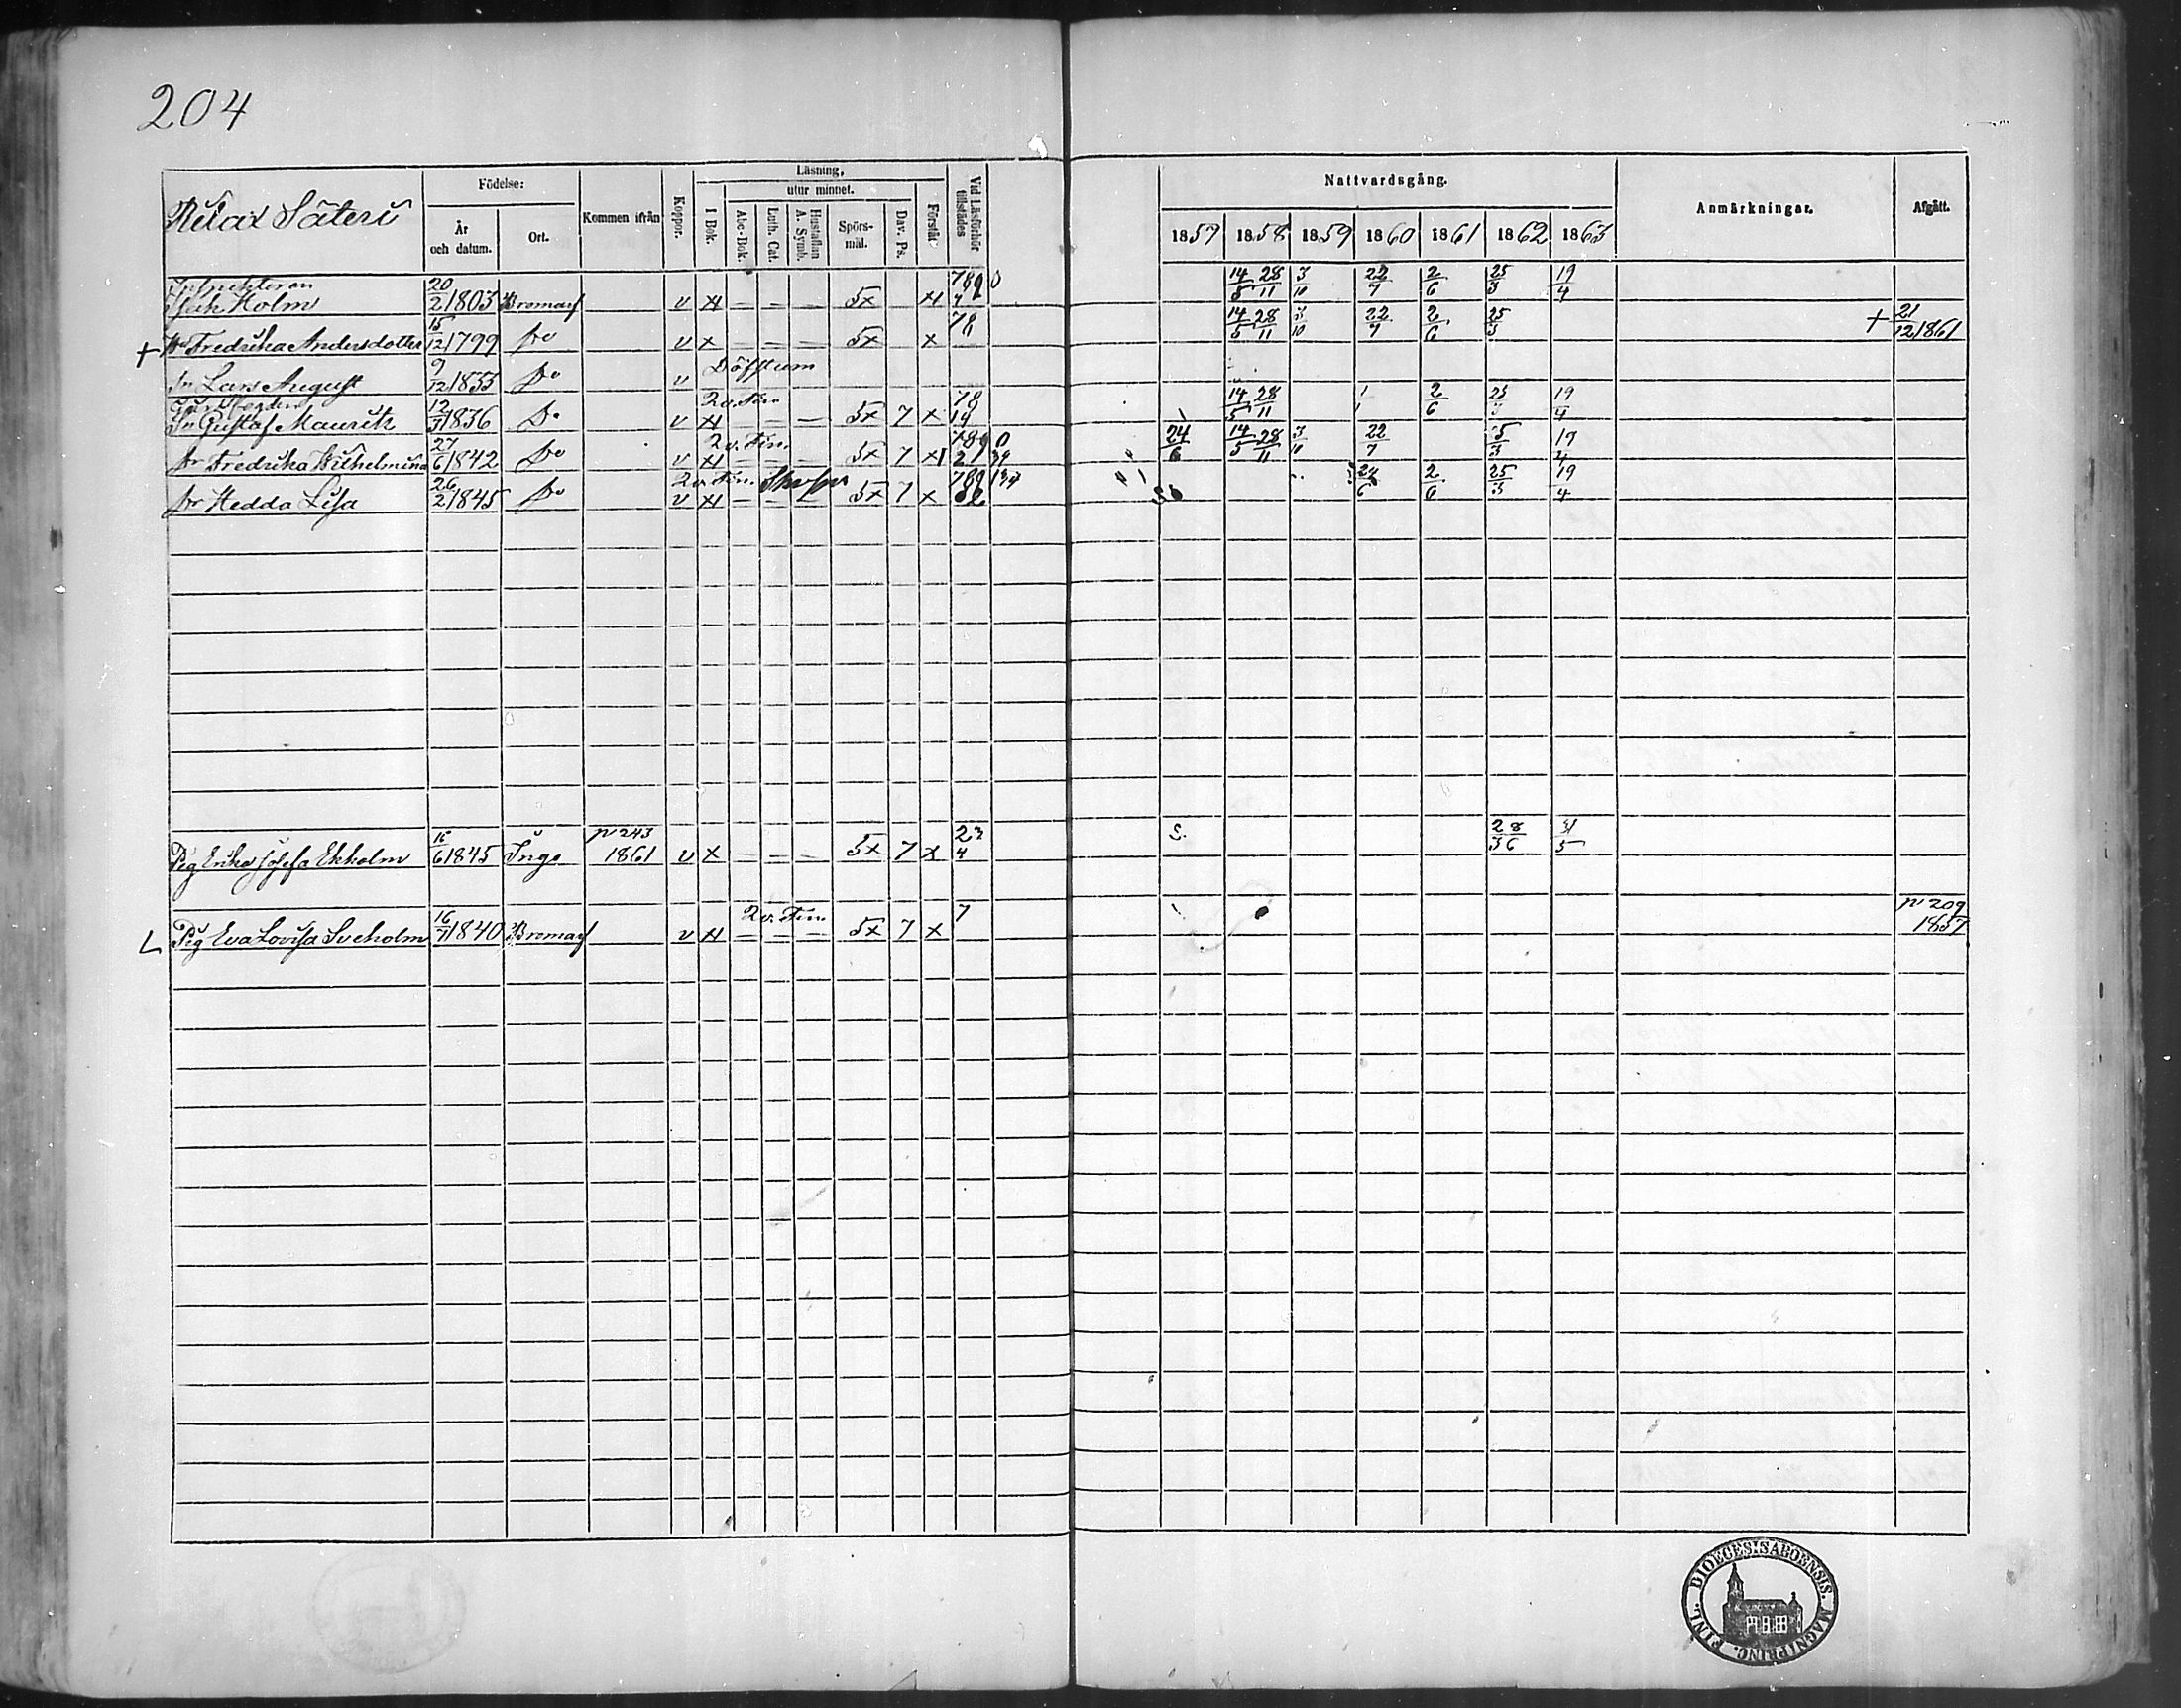 204
Rilax Säteri
Födelse:
År och datum.
Ort.
Kommen ifrån
Koppor.
Läsning,
I Bok.
utur minnet.
Abc-Bok.
Luth. Cat.
Hustaflan A. Symb.
Spörs-mål.
Dav. Ps.
Förstår
Vid Läsförhör tillstädes
Nattvardsgång.
1857 1858 1859 1860 1861 1862 1863
Anmärkningar.
Afgått.
Inspektoren
Isak Holm 20/2 1803 Bromarf v x – – – 5x x 789 0 14/5 28/11 3/10 22/7 2/6 25/3 19/4
+ Hu Fredrika Andersdotter 15/12 1799 Do v x – – – 5x x 78 14/5 28/11 3/10 22/7 2/6 25/3 + 21/12 1861
Sn Lars August 9/12 1833 Do v Döfstum
Sn Gustaf Maurits 12/3 1836 Do v x 2 v. Fin – – – 5x 7 x 78 19 14/5 28/11 2/6 25/3 19/4
Dr Fredrika Wilhelmina 27/6 1842 Do v x 2 v. Fin. – – – 5x 7 x 789 0 24/6 14/5 28/11 3/10 22/7 25/3 19/4
Dr Hedda Lisa 26/2 1845 Do v x 2 v. Fin. – – – 5x 7 x 789 24/6 2/6 25/3 19/4
Pig Erika Josefa Ekholm 6 1845 Inga p 243 1861 v x – – – 5x 7 x 23 4 S. 28/36 31/5
L Pig Eva Lovisa Sveholm 16/7 1840 Bromarf v x 2 v. Fin. – – – 5x 7 x 7 p 209 1857
FINL. DIOECESIS ABOENSIS. MAGNI PRINC.